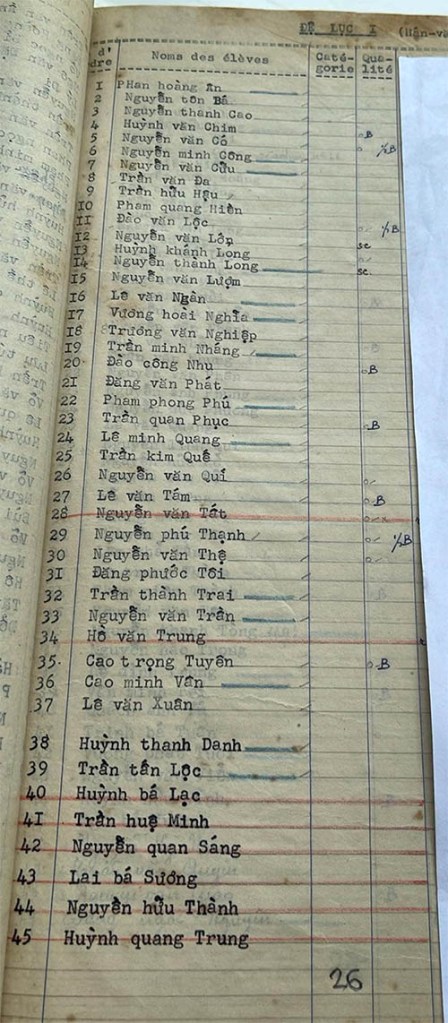 ĐỆ LỤC I (Hán-vă
d'
dre Noms des élèves Caté-
gorie Qua-
lité
1 PHan hoàng Ân
2 Nguyễn tôn Bá
3 Nguyễn thành Cao
4 Huỳnh văn Chim
5 Nguyễn văn Có oB
6 Nguyễn minh Công o ½B
7 Nguyễn văn Cửu
8 Trần văn Đa
9 Trần hữu Hậu
10 Phạm quang Hiền
11 Đào văn Lộc o ½B
12 Nguyễn văn Lớn
13 Huỳnh khánh Long sc
14 Nguyễn thành Long o
15 Nguyễn văn Lượm sc
16 Lê văn Ngàn
17 Vương hoài Nghĩa
18 Trương văn Nghiệp
19 Trần minh Nháng
20 Đào công Nhu oB
21 Đăng văn Phát
22 Phạm phong Phú
23 Trần quan Phục oB
24 Lê minh Quang
25 Trần kim Quế
26 Nguyễn văn Quí o
27 Lê văn Tám o B
28 Nguyễn văn Tất o
29 Nguyễn phú Thạnh o ½B
30 Nguyễn văn Thệ o
31 Đăng phước Tôi
32 Trần thành Trai
33 Nguyễn văn Trân
34 Hồ văn Trung
35 Cao trọng Tuyên o B
36 Cao minh Vân
37 Lê văn Xuân
38 Huỳnh thanh Danh
39 Trần tấn Lộc
40 Huỳnh bá Lạc
41 Trần huệ Minh
42 Nguyễn quan Sáng
43 Lai bá Sương
44 Nguyễn hữu Thành
45 Huỳnh quang Trung
26